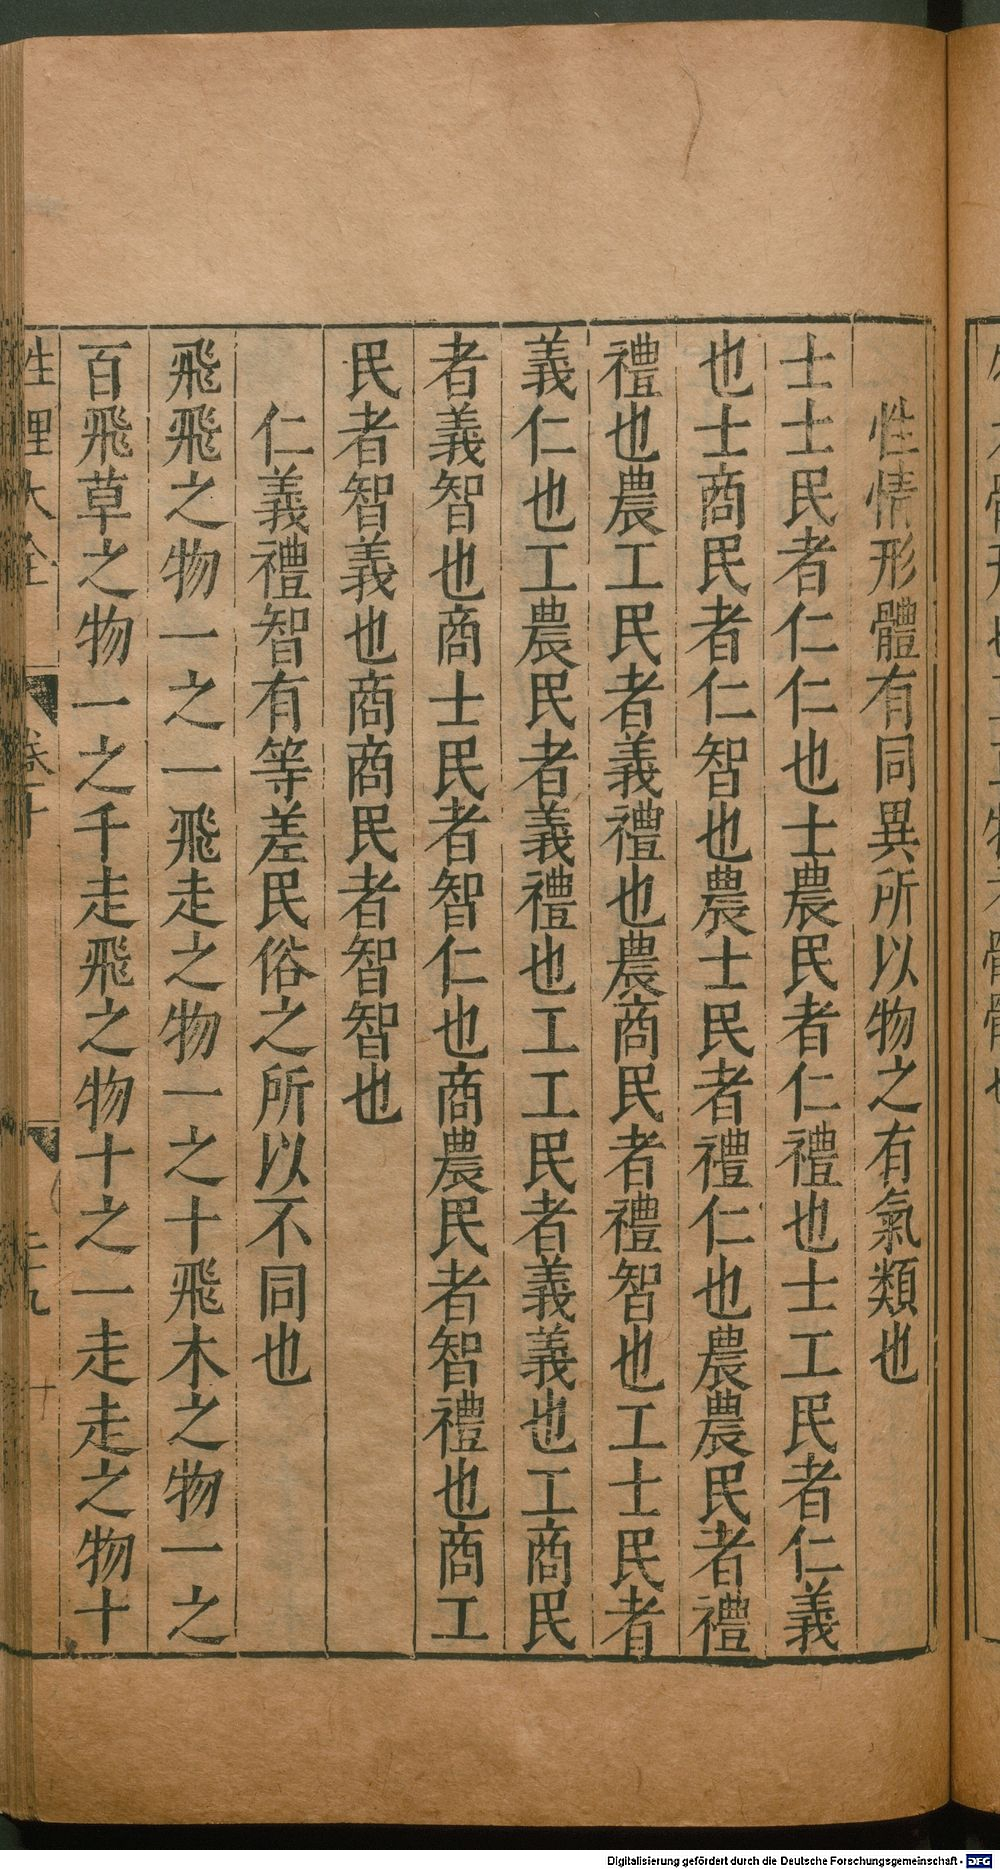 性情形體有同異所以物之有氣類也
士士民者仁仁也士農民者仁禮也士工民者仁義
也士商民者仁智也農士民者禮仁也農農民者禮
禮也農工民者義禮也農商民者禮智也工士民者
義仁也工農民者義禮也工工民者義義也工商民
者義智也商士民者智仁也商農民者智禮也商工
民者智義也商商民者智智也
仁義禮智有等差民俗之所以不同也
飛飛之物一之一飛走之物一之十飛木之物一之
百飛草之物一之千走飛之物十之一走走之物十
性理大全 卷十
Digitalisierung gefördert durch die Deutsche Forschungsgemeinschaft - DFG